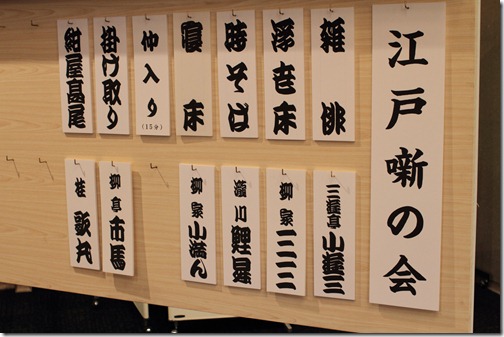 江戸噺の会
雑俳
三遊亭 小遊三
浮世床
柳家 三三
時そば
瀧川 鯉昇
寝床
柳家 小満ん
仲入り
(15分)
掛け取り
柳亭 市馬
紺屋高尾
桂 歌丸